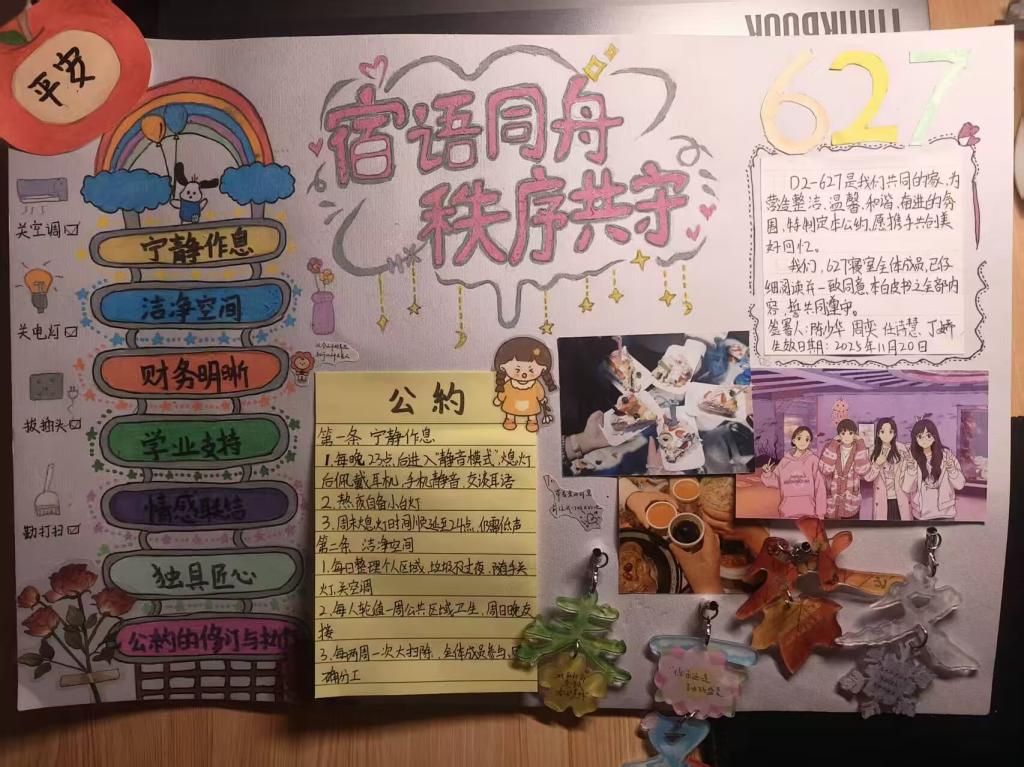 THINKBOOK
平安
宿语同舟
秩序共守
627
关空调
关电灯
拔插头
勤打扫
宁静作息
洁净空间
财务明晰
学业支持
情感联结
独具匠心
公约的修订与执行
D2-627是我们共同的家,为
营造整洁、温馨、和谐、奋进的氛
围,特制定本公约,愿携手共创美
好回忆。
我们,627寝室全体成员,已仔
细阅读并一致同意,本白皮书之全部内
容,誓共同遵守。
签署人:陈少华 周奕 任诗慧 丁娇
生效日期:2025年11月20日
公约
第一条 宁静作息
1.每晚23点后进入“静音模式”,熄灯
后佩戴耳机,手机静音,交谈耳语
2.熬夜自备小台灯
3.周末熄灯时间顺延至24点,仍需低声
第二条 洁净空间
1.每日整理个人区域,垃圾不过夜,随手关
灯、关空调
2.每人轮值一周公共区域卫生,周日晚交
接
3.每两周一次大扫除,全体成员参与,
确分工